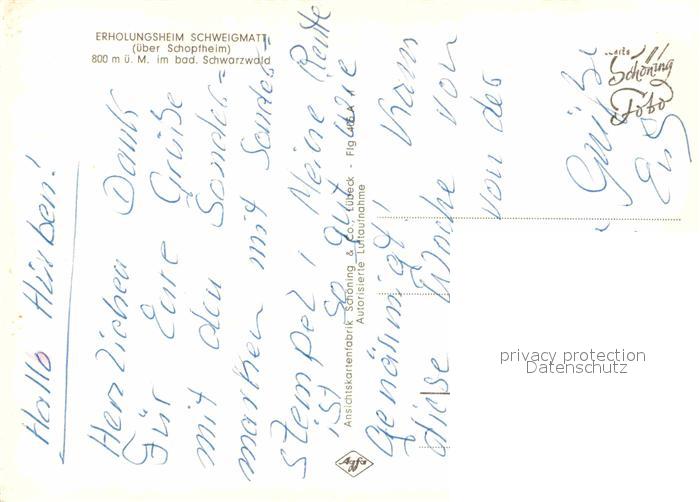 ERHOLUNGSHEIM SCHWEIGMATT
(über Schopfheim)
800 m ü. M. im bad. Schwarzwald
Hallo
Herzlichen Dank
für Eure Grüße
mit den Sonder-
marken mit Sonder-
stempel! Meine Rente
ist so gut wie
genämigt! Kam
diese Woche von
von der
Grüße
Ansichtskartenfabrik Schöning & Co., Lübeck - Flg
Autorisierte Luftaufnahme
Schöning
Foto
Agfa
privacy protection
Datenschutz